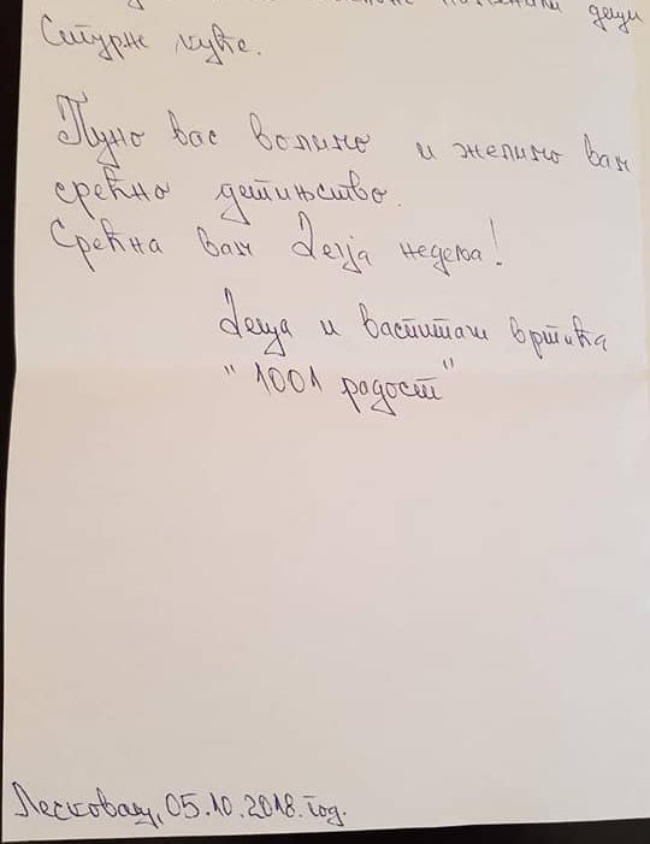 деци
Сигурне куће.
Пуно вас волимо и желимо вам
срећно детињство.
Срећна вам Дечја недеља!
Деца и васпитачи вртића
"1001 радост"
Лесковац, 05.10.2018. год.